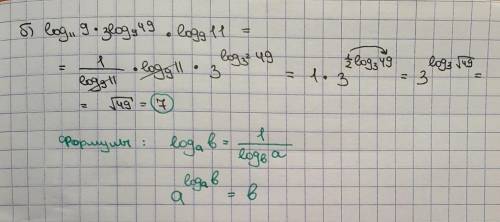 б) log₁₁ 9 · 3^(log₉ 49) · log₉ 11 =
= 1/(log₉ 11) · log₉ 11 · 3^(log₃² 49) = 1 · 3^(½ log₃ 49) = 3^(log₃ √49) =
= √49 = 7
Формулы: logₐ b = 1/(log_b a)
a^(logₐ b) = b